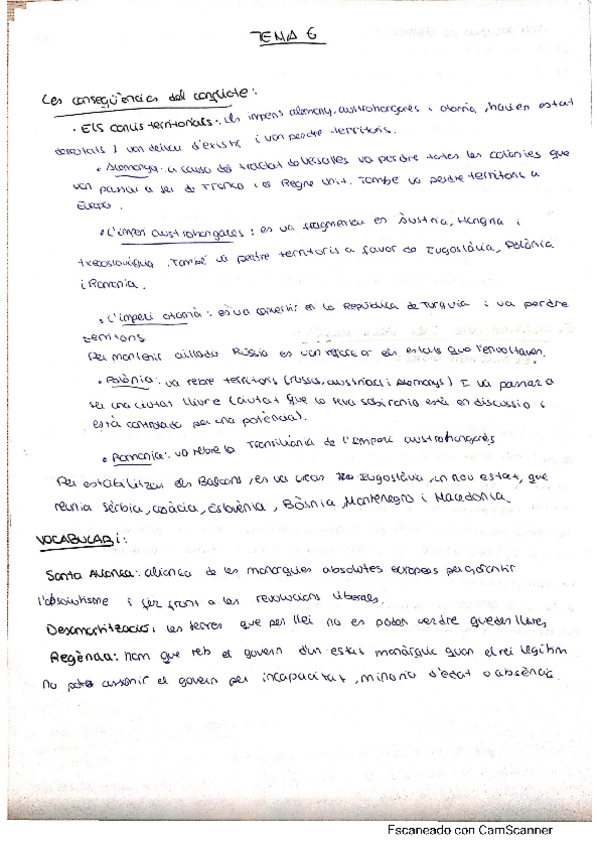 TEMA 6
Les conseqüències del conflicte:
• Els canvis territorials: els imperis alemany, austrohongarès i otomà, havien estat
derrotats i van deixar d'existir i van perdre territoris.
• Alemanya: a causa del tractat de Versalles va perdre totes les colònies que
van passar a ser de França i el Regne Unit. També va perdre territoris a
Europa.
• L'imperi austrohongarès: es va fragmentar en Àustria, Hongria i
Txecoslovàquia. També va perdre territoris a favor de Iugoslàvia, Polònia
i Romania.
• L'imperi otomà: es va convertir en la República de Turquia i va perdre
territoris
Per mantenir aïllada Rússia es van reforçar els estats que l'envoltaven.
• Polònia: va rebre territoris (russos, austríacs i alemanys) I va passar a
ser una ciutat lliure (ciutat que la seva sobirania està en discussió i
està controlada per una potència).
• Romania: va rebre la Transilvània de l'Imperi austrohongarès
Per estabilitzar els Balcans, es va crear Iugoslàvia, un nou estat, que
reunia Sèrbia, Croàcia, Eslovènia, Bòsnia, Montenegro i Macedonia.
VOCABULARI:
Santa Aliança: aliança de les monarquies absolutes europees per garantir
l'absolutisme i fer front a les revolucions liberals.
Desamortització: les terres que per llei no es poden vendre queden lliures
Regència: nom que reb el govern d'un estat monàrquic quan el rei legítim
no pot assumir el govern per incapacitat, minoria d'edat o absència.
Escaneado con CamScanner